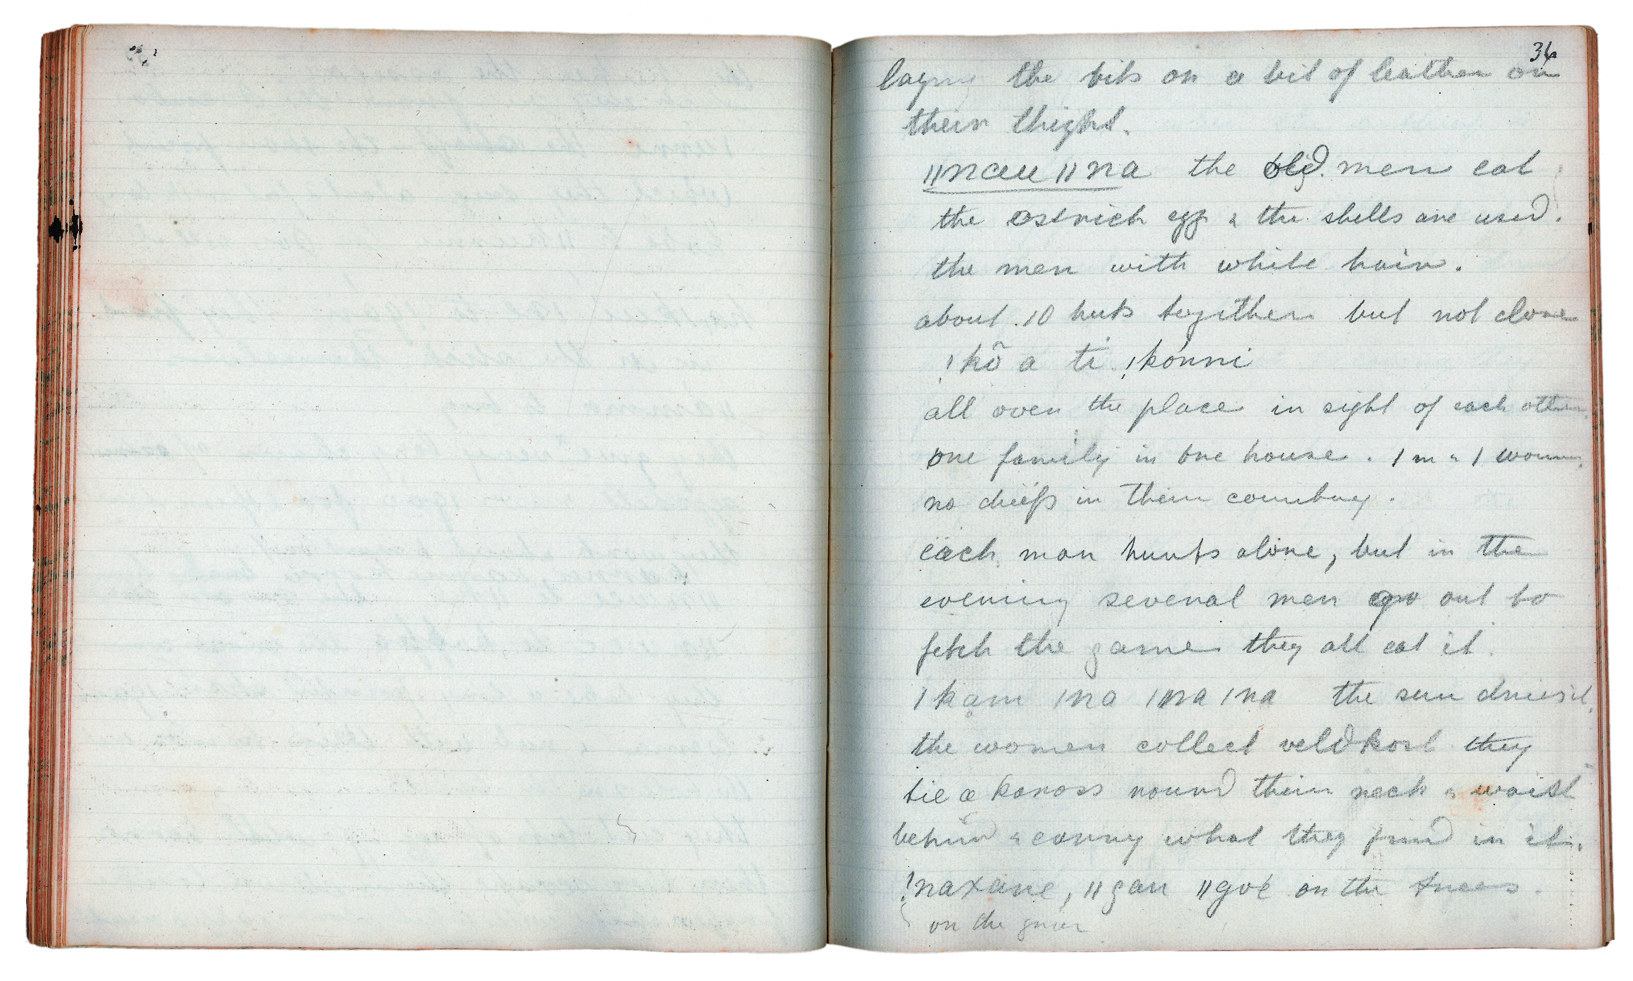 34
laying the bits on a bit of leather on
their thight.
ǁnau ǁna the old men eat
the ostrich egg & the shells are used.
the men with white hair.
about 10 huts together but not close
!kõ a ti !kónni
all over the place in sight of each other.
one family in one house. 1 m & 1 woman.
no chiefs in their country.
each man hunts alone, but in the
evening several men go out to
fetch the game they all eat it.
ǀkam ǀna ǀna ǀna the sun dries it.
the women collect veldkost they
tie a kaross round their neck & waist
behind & carry what they find in it.
!naxane, ǁgau ǁgoé on the trees.
on the